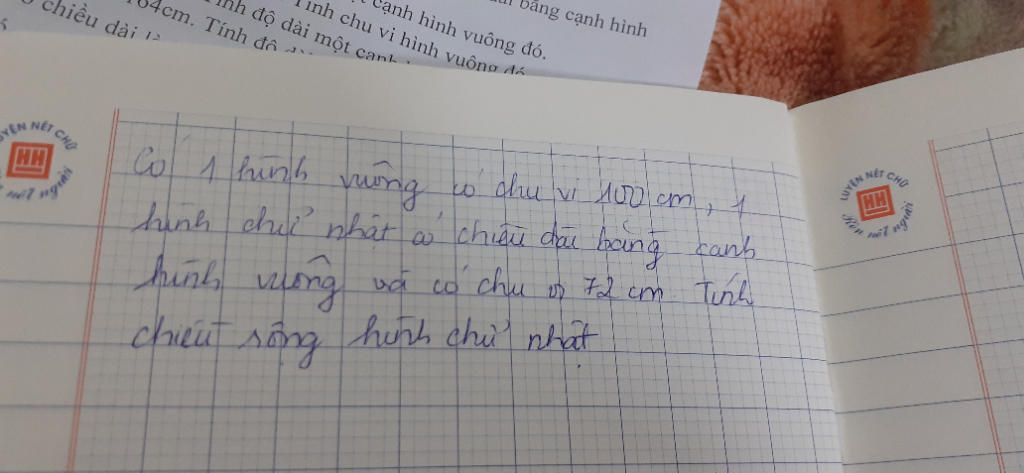 bằng cạnh hình
cạnh hình vuông đó.
Tính chu vi hình vuông đó
64cm. Tính độ dài một cạnh
chiều dài
LUYỆN NÉT CHỮ
HH
Rèn nết người
Có 1 hình vuông có chu vi 100 cm, 1
hình chữ nhật có chiều dài bằng cạnh
hình vuông và có chu vi 72 cm. Tính
chiều rông hình chữ nhật.
LUYỆN NÉT CHỮ
HH
Rèn nết người